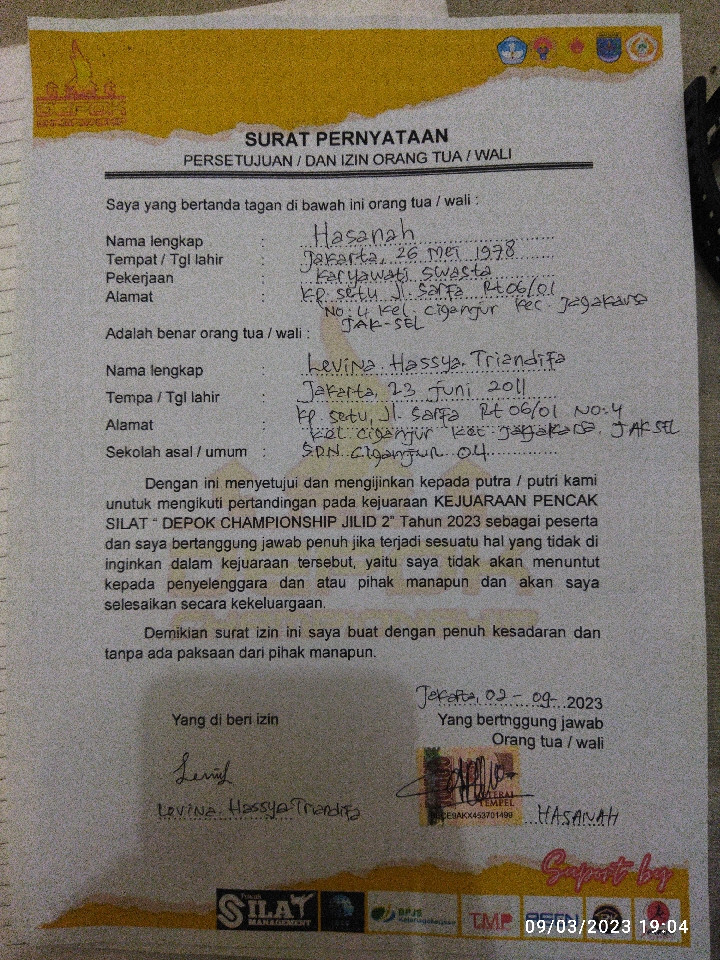 DEPOK
SURAT PERNYATAAN
PERSETUJUAN / DAN IZIN ORANG TUA / WALI
Saya yang bertanda tagan di bawah ini orang tua / wali :
Nama lengkap : Hasanah
Tempat / Tgl lahir : Jakarta, 26 Mei 1978
Pekerjaan : Karyawati Swasta
Alamat : Kp. setu Jl. Sarfa Rt 06/01
No: 4 Kel. Ciganjur Kec. Jagakarsa
JAK-SEL
Adalah benar orang tua / wali :
Nama lengkap : Levina Hassya Triandifa
Tempa / Tgl lahir : Jakarta, 23 Juni 2011
Alamat : Kp. setu, Jl. Sarfa Rt 06/01 No: 4
Kel. Ciganjur Kec. Jagakarsa. JAKSEL
Sekolah asal / umum : SDN Ciganjur 04
Dengan ini menyetujui dan mengijinkan kepada putra / putri kami
unutuk mengikuti pertandingan pada kejuaraan KEJUARAAN PENCAK
SILAT " DEPOK CHAMPIONSHIP JILID 2" Tahun 2023 sebagai peserta
dan saya bertanggung jawab penuh jika terjadi sesuatu hal yang tidak di
inginkan dalam kejuaraan tersebut, yaitu saya tidak akan menuntut
kepada penyelenggara dan atau pihak manapun dan akan saya
selesaikan secara kekeluargaan.
Demikian surat izin ini saya buat dengan penuh kesadaran dan
tanpa ada paksaan dari pihak manapun.
Jakarta, 02 - 09 - 2023
Yang di beri izin
Yang bertnggung jawab
Orang tua / wali
METERAI
TEMPEL
CE9AKX453701499
Levina Hassya Triandifa
HASANAH
Suport by
SILAT
MANAGEMENT
BPJS
Ketenagakerjaan
TMP
09/03/2023 19:04